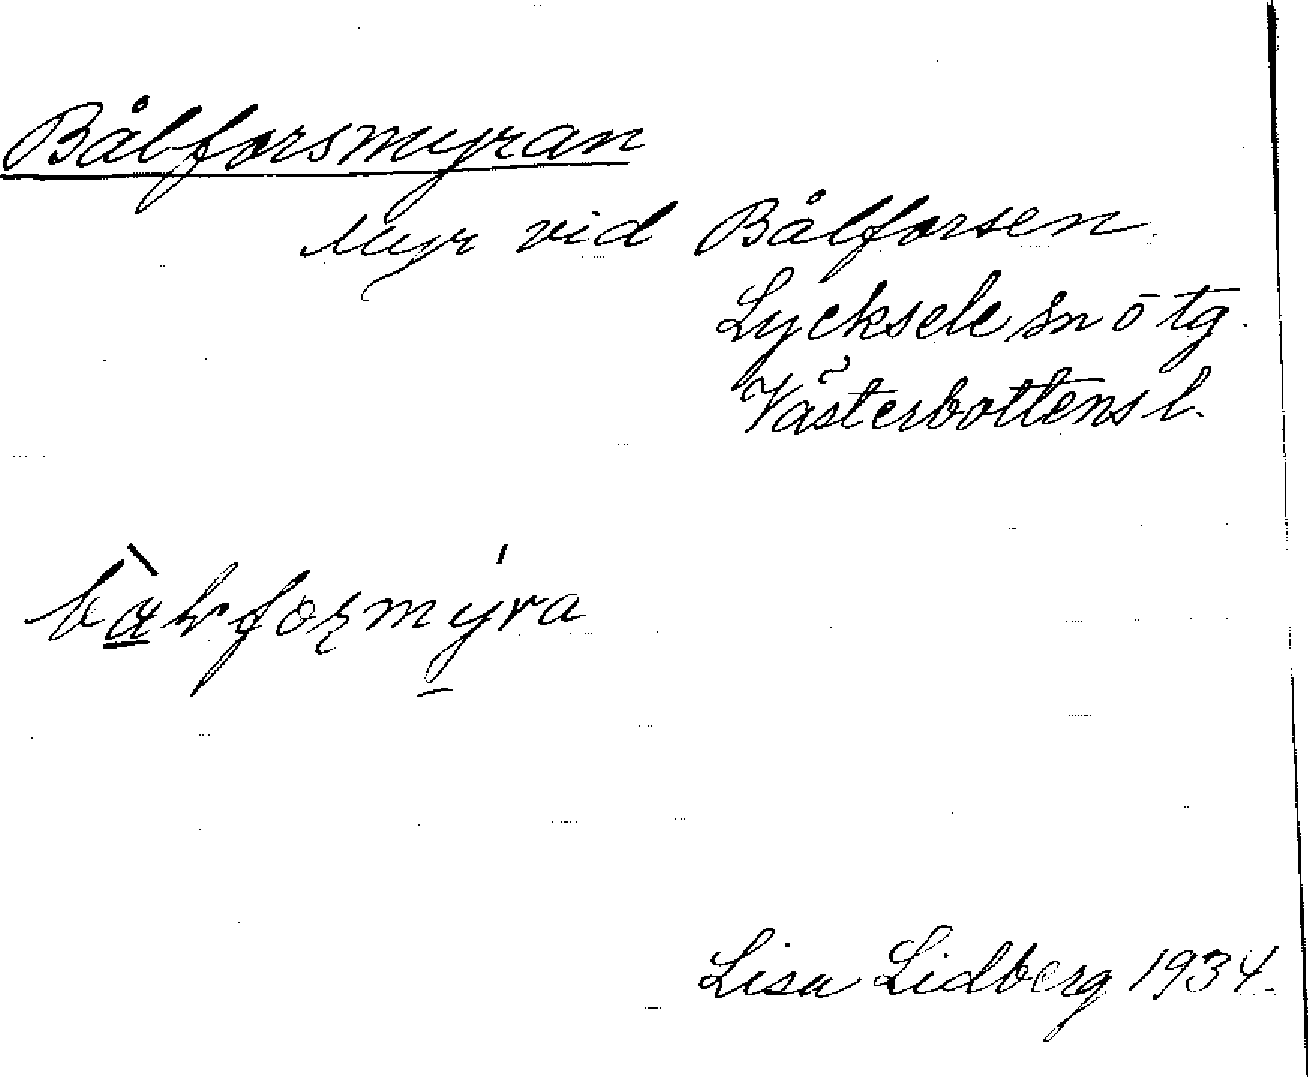 Bålforsmyran
Myr vid Bålforsen
Lycksele sn o tg.
Västerbottens l.
Lisa Lidberg 1934.